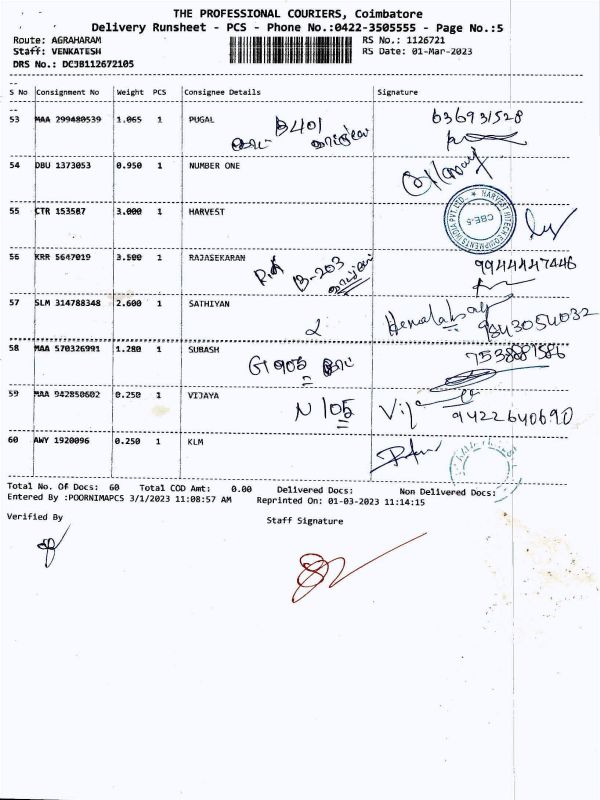 THE PROFESSIONAL COURIERS, Coimbatore
Delivery Runsheet - PCS - Phone No.:0422-3505555 - Page No.:5
Route: AGRAHARAM
RS No.: 1126721
Staff: VENKATESH
RS Date: 01-Mar-2023
DRS No.: DCJB112672105
S No Consignment No Weight PCS Consignee Details Signature
53 MAA 299480539 1.065 1 PUGAL
B401
636931528
54 DBU 1373053 0.950 1 NUMBER ONE
55 CTR 153587 3.000 1 HARVEST
HARVEST HITECH EQUIPMENTS INDIA PVT LTD.
CBE-5
56 KRR 5647019 3.500 1 RAJASEKARAN
B-203
9944447446
57 SLM 314788348 2.600 1 SATHIYAN
9843054032
58 MAA 570326991 1.280 1 SUBASH
G1 905
7538881586
59 MAA 942850602 0.250 1 VIJAYA
N 105
9422640690
60 AWY 1920096 0.250 1 KLM
Total No. Of Docs: 60 Total COD Amt: 0.00 Delivered Docs: Non Delivered Docs:
Entered By :POORNIMAPCS 3/1/2023 11:08:57 AM Reprinted On: 01-03-2023 11:14:15
Verified By
Staff Signature